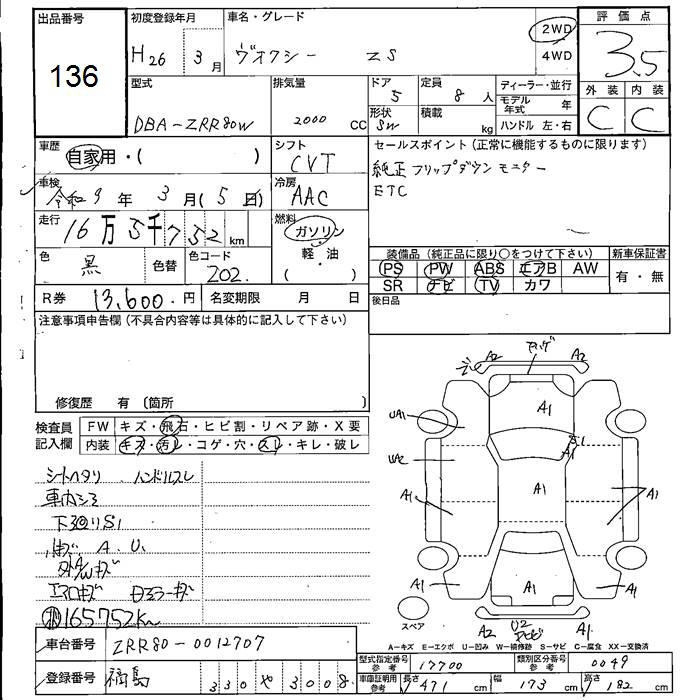 出品番号
136
初度登録年月
H26 3月
車名・グレード
ヴォクシー ZS
2WD
4WD
評価点
3.5
型式
DBA-ZRR80W
排気量
2000 CC
ドア
5
形状
SW
定員
8 人
積載
kg
ディーラー・並行
モデル年式 年
ハンドル 左・右
外装 内装
C C
車歴
自家用・( )
シフト
CVT
車検
令和9年3月(5日)
冷房
AAC
走行
16万5千752km
燃料
ガソリン
軽・油
( )
色
黒
色替
色コード
202
R券 13,600.円
名変期限 月 日
セールスポイント(正常に機能するものに限ります)
純正フリップダウンモニター
ETC
装備品(純正品に限り○をつけて下さい)
PS PW ABS エアB AW
SR ナビ TV カワ
新車保証書
有・無
後日品
注意事項申告欄(不具合内容等は具体的に記入して下さい)
修復歴 有(箇所 )
検査員記入欄
FW キズ・飛石・ヒビ割・リペア跡・X要
内装 キズ・汚レ・コゲ・穴・スレ・キレ・破レ
シートヘタリ ハンドルスレ
車内シミ
下廻りS1
A.U.
165752km
車台番号 ZRR80-0012707
登録番号 福島 330 や 3008
A2 A2
A1
UA1
S1
A1
UA2
A1
A1
A1
A1
A1
A1
スペア
A2 U2 A1
A-キズ E-エクボ U-凹み W-補修跡 S-サビ C-腐食 XX-交換済
型式指定番号 参考 17700
類別区分番号 参考 0049
車庫証明用 参考
長さ 471 cm
幅 173 cm
高さ 182 cm